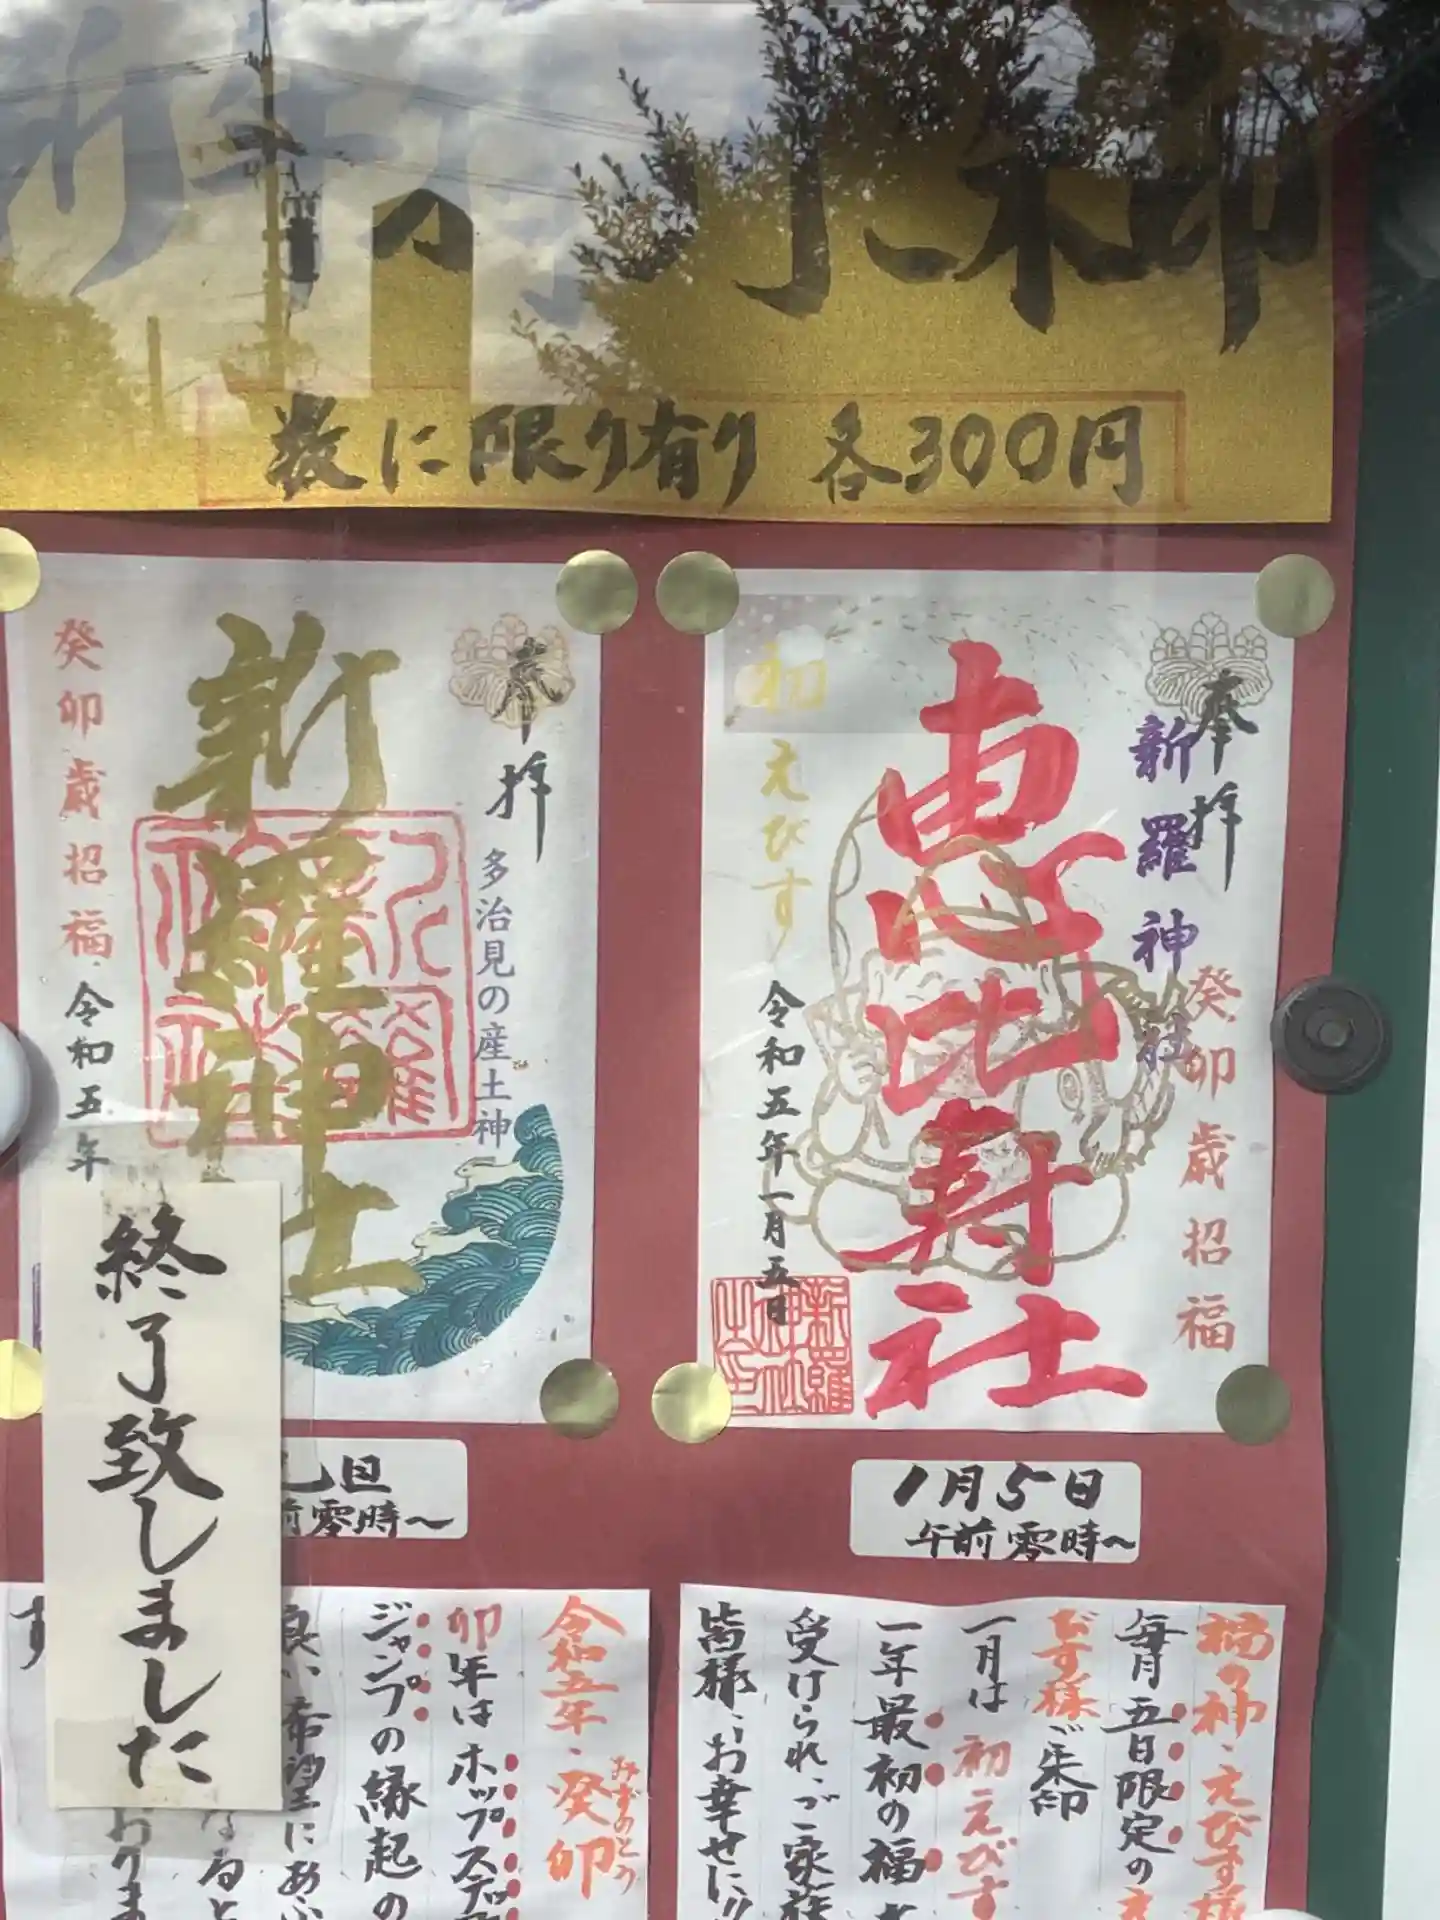 朱印
数に限り有り 各300円
奉拝
新羅神社
惠比寿社
初えびす
癸卯歳招福
令和五年一月五日
奉拝
多治見の産土神
新羅神社
癸卯歳招福
令和五年
終了致しました
1月5日
午前零時〜
旦
前零時〜
福の神・えびす様
毎月五日限定の
びす様ご朱印
一月は初えびす
一年最初の福
受けられ、ご家族
皆様、お幸せに
令和五年・癸卯
みずのとう
卯年はホップステップ
ジャンプの縁起の
良い希望にあふ
なると
おりま
す